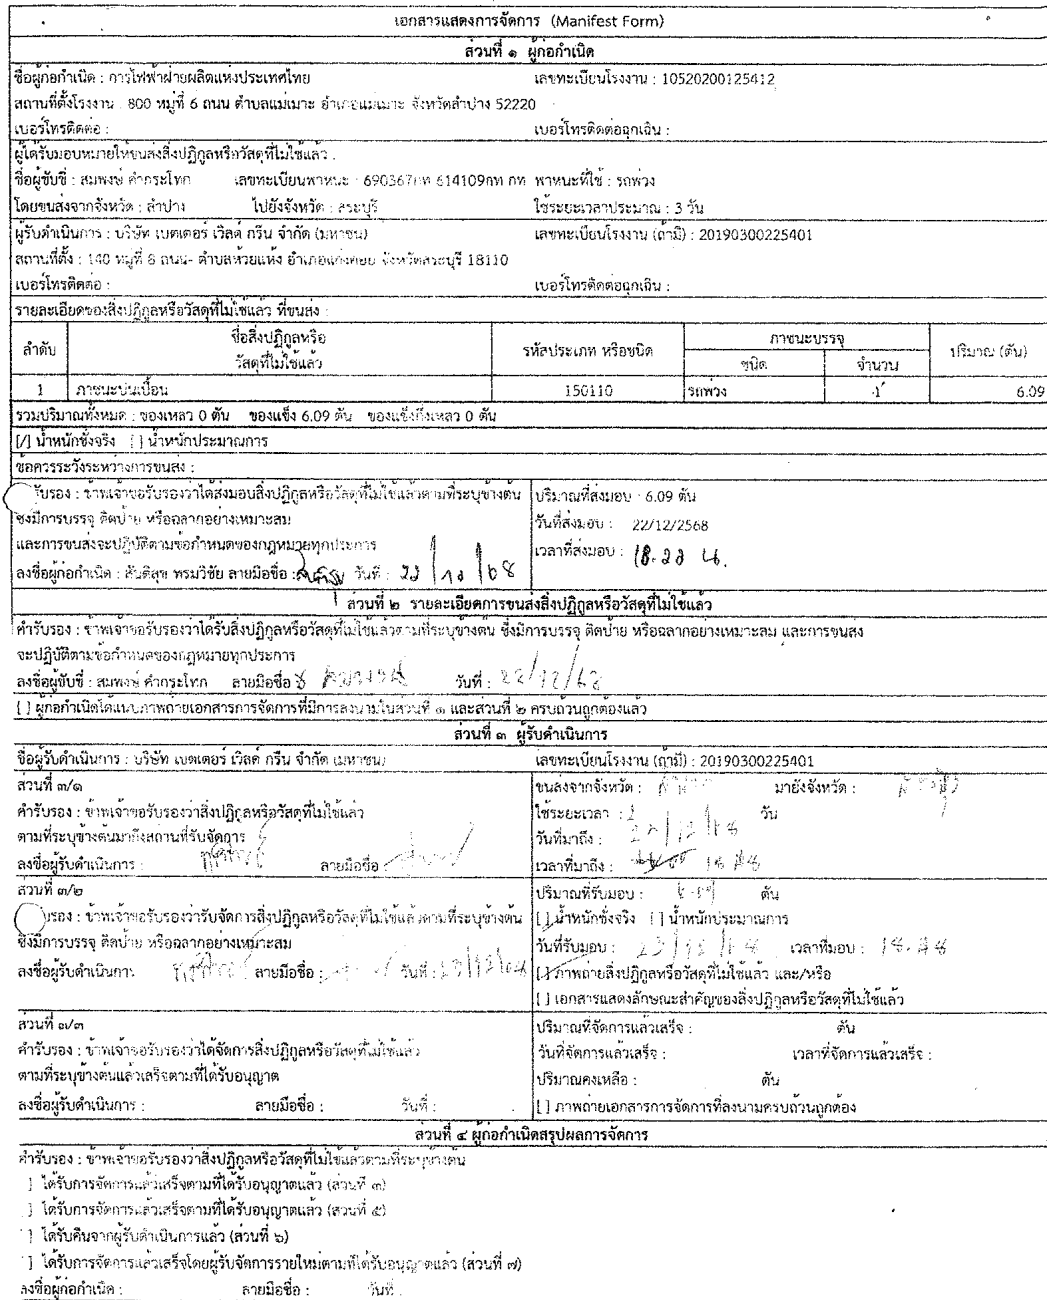 เอกสารแสดงการจัดการ (Manifest Form)
ส่วนที่ ๑ ผู้ก่อกำเนิด
ชื่อผู้ก่อกำเนิด : การไฟฟ้าฝ่ายผลิตแห่งประเทศไทย เลขทะเบียนโรงงาน : 10520200125412
สถานที่ตั้งโรงงาน : 800 หมู่ที่ 6 ถนน ตำบลแม่เมาะ อำเภอแม่เมาะ จังหวัดลำปาง 52220
เบอร์โทรติดต่อ : เบอร์โทรติดต่อฉุกเฉิน :
ผู้ได้รับมอบหมายให้ขนส่งสิ่งปฏิกูลหรือวัสดุที่ไม่ใช้แล้ว :
ชื่อผู้ขับขี่ : สมพงษ์ คำกระโทก เลขทะเบียนพาหนะ : 690367กท 614109กท กท พาหนะที่ใช้ : รถพ่วง
โดยขนส่งจากจังหวัด : ลำปาง ไปยังจังหวัด : สระบุรี ใช้ระยะเวลาประมาณ : 3 วัน
ผู้รับดำเนินการ : บริษัท เบตเตอร์ เวิลด์ กรีน จำกัด (มหาชน) เลขทะเบียนโรงงาน (ถ้ามี) : 20190300225401
สถานที่ตั้ง : 140 หมู่ที่ 8 ถนน- ตำบลห้วยแห้ง อำเภอแก่งคอย จังหวัดสระบุรี 18110
เบอร์โทรติดต่อ : เบอร์โทรติดต่อฉุกเฉิน :
รายละเอียดของสิ่งปฏิกูลหรือวัสดุที่ไม่ใช้แล้ว ที่ขนส่ง :
ลำดับ ชื่อสิ่งปฏิกูลหรือ วัสดุที่ไม่ใช้แล้ว รหัสประเภท หรือชนิด ภาชนะบรรจุ ชนิด จำนวน ปริมาณ (ตัน)
1 ภาชนะปนเปื้อน 150110 รถพ่วง 1 6.09
รวมปริมาณทั้งหมด : ของเหลว 0 ตัน ของแข็ง 6.09 ตัน ของแข็งกึ่งเหลว 0 ตัน
[/] น้ำหนักชั่งจริง [ ] น้ำหนักประมาณการ
ข้อควรระวังระหว่างการขนส่ง :
รับรอง : ข้าพเจ้าขอรับรองว่าได้ส่งมอบสิ่งปฏิกูลหรือวัสดุที่ไม่ใช้แล้วตามที่ระบุข้างต้น ปริมาณที่ส่งมอบ : 6.09 ตัน
ซึ่งมีการบรรจุ ติดป้าย หรือฉลากอย่างเหมาะสม วันที่ส่งมอบ : 22/12/2568
และการขนส่งจะปฏิบัติตามข้อกำหนดของกฎหมายทุกประการ เวลาที่ส่งมอบ : 18.22 น.
ลงชื่อผู้ก่อกำเนิด : สันติสุข พรมวิชัย ลายมือชื่อ : วันที่ : 22/12/68
ส่วนที่ ๒ รายละเอียดการขนส่งสิ่งปฏิกูลหรือวัสดุที่ไม่ใช้แล้ว
คำรับรอง : ข้าพเจ้าขอรับรองว่าได้รับสิ่งปฏิกูลหรือวัสดุที่ไม่ใช้แล้วตามที่ระบุข้างต้น ซึ่งมีการบรรจุ ติดป้าย หรือฉลากอย่างเหมาะสม และการขนส่ง
จะปฏิบัติตามข้อกำหนดของกฎหมายทุกประการ
ลงชื่อผู้ขับขี่ : สมพงษ์ คำกระโทก ลายมือชื่อ วันที่ : 22/12/68
[ ] ผู้ก่อกำเนิดได้แนบภาพถ่ายเอกสารการจัดการที่มีการลงนามในส่วนที่ ๑ และส่วนที่ ๒ ครบถ้วนถูกต้องแล้ว
ส่วนที่ ๓ ผู้รับดำเนินการ
ชื่อผู้รับดำเนินการ : บริษัท เบตเตอร์ เวิลด์ กรีน จำกัด (มหาชน) เลขทะเบียนโรงงาน (ถ้ามี) : 20190300225401
ส่วนที่ ๓/๑ ขนส่งจากจังหวัด : มายังจังหวัด :
คำรับรอง : ข้าพเจ้าขอรับรองว่าสิ่งปฏิกูลหรือวัสดุที่ไม่ใช้แล้ว ใช้ระยะเวลา : วัน
ตามที่ระบุข้างต้นมาถึงสถานที่รับจัดการ วันที่มาถึง :
ลงชื่อผู้รับดำเนินการ : ลายมือชื่อ เวลาที่มาถึง :
ส่วนที่ ๓/๒ ปริมาณที่รับมอบ : 6.09 ตัน
รับรอง : ข้าพเจ้าขอรับรองว่ารับจัดการสิ่งปฏิกูลหรือวัสดุที่ไม่ใช้แล้วตามที่ระบุข้างต้น [ ] น้ำหนักชั่งจริง [ ] น้ำหนักประมาณการ
ซึ่งมีการบรรจุ ติดป้าย หรือฉลากอย่างเหมาะสม วันที่รับมอบ : 23/12/68 เวลาที่มอบ :
ลงชื่อผู้รับดำเนินการ ลายมือชื่อ : วันที่ : 23/12/68 [ ] ภาพถ่ายสิ่งปฏิกูลหรือวัสดุที่ไม่ใช้แล้ว และ/หรือ
[ ] เอกสารแสดงลักษณะสำคัญของสิ่งปฏิกูลหรือวัสดุที่ไม่ใช้แล้ว
ส่วนที่ ๓/๓ ปริมาณที่จัดการแล้วเสร็จ : ตัน
คำรับรอง : ข้าพเจ้าขอรับรองว่าได้จัดการสิ่งปฏิกูลหรือวัสดุที่ไม่ใช้แล้ว วันที่จัดการแล้วเสร็จ : เวลาที่จัดการแล้วเสร็จ :
ตามที่ระบุข้างต้นแล้วเสร็จตามที่ได้รับอนุญาต ปริมาณคงเหลือ : ตัน
ลงชื่อผู้รับดำเนินการ : ลายมือชื่อ : วันที่ : [ ] ภาพถ่ายเอกสารการจัดการที่ลงนามครบถ้วนถูกต้อง
ส่วนที่ ๔ ผู้ก่อกำเนิดสรุปผลการจัดการ
คำรับรอง : ข้าพเจ้าขอรับรองว่าสิ่งปฏิกูลหรือวัสดุที่ไม่ใช้แล้วตามที่ระบุข้างต้น
] ได้รับการจัดการแล้วเสร็จตามที่ได้รับอนุญาตแล้ว (ส่วนที่ ๓)
] ได้รับการจัดการแล้วเสร็จตามที่ได้รับอนุญาตแล้ว (ส่วนที่ ๕)
] ได้รับคืนจากผู้รับดำเนินการแล้ว (ส่วนที่ ๖)
] ได้รับการจัดการแล้วเสร็จโดยผู้รับจัดการรายใหม่ตามที่ได้รับอนุญาตแล้ว (ส่วนที่ ๗)
ลงชื่อผู้ก่อกำเนิด : ลายมือชื่อ : วันที่ :